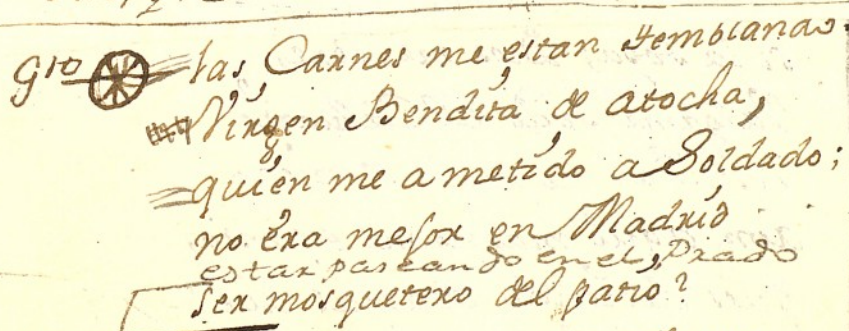 gro las Carnes me estan temblando.
Virgen Bendita de atocha,
quien me a metido a Soldado;
no era mejor en Madrid
estar paseando en el, Prado
ser mosquetero del patio?